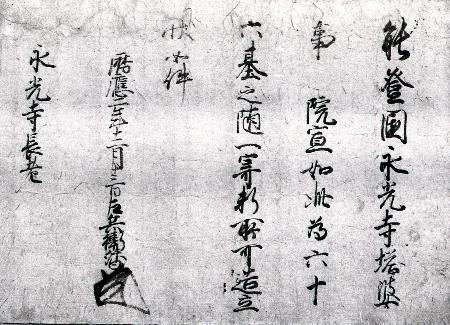 能登國永光寺塔婆
事 院宣如此為六十
六基之随一寄料所可造立
状如件
暦應二年十二月十三日左兵衛督
永光寺長老